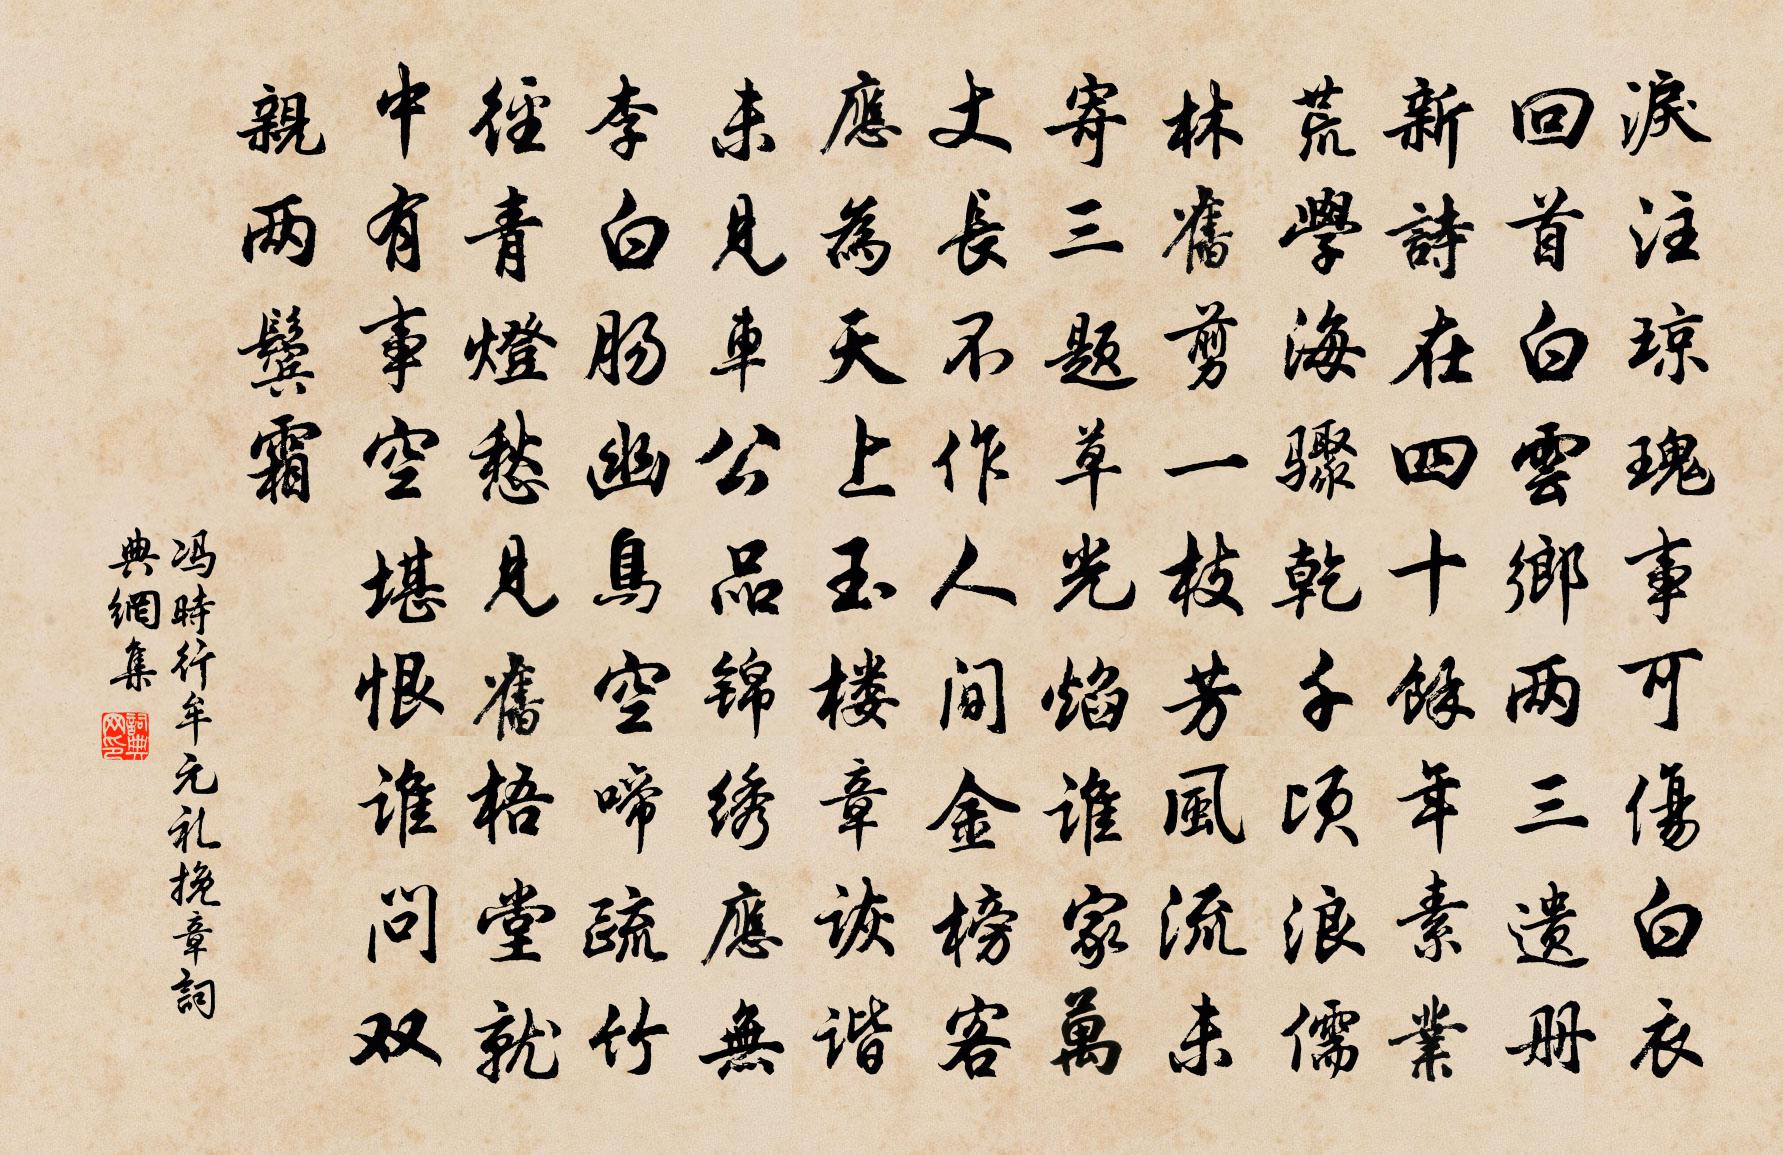 淚注琼瑰事可傷白衣
回首白雲鄉两三遗册
新詩在四十餘年素業
荒學海驟乾千顷浪儒
林舊剪一枝芳風流未
寄三題草光焰誰家萬
丈長不作人间金榜客
應為天上玉楼章诙谐
未見車公品锦绣應無
李白肠幽鳥空啼疏竹
徑青燈愁見舊梧堂就
中有事空堪恨谁问双
親两鬓霜
冯時行牟元礼挽章詞
典網集
詞典网印